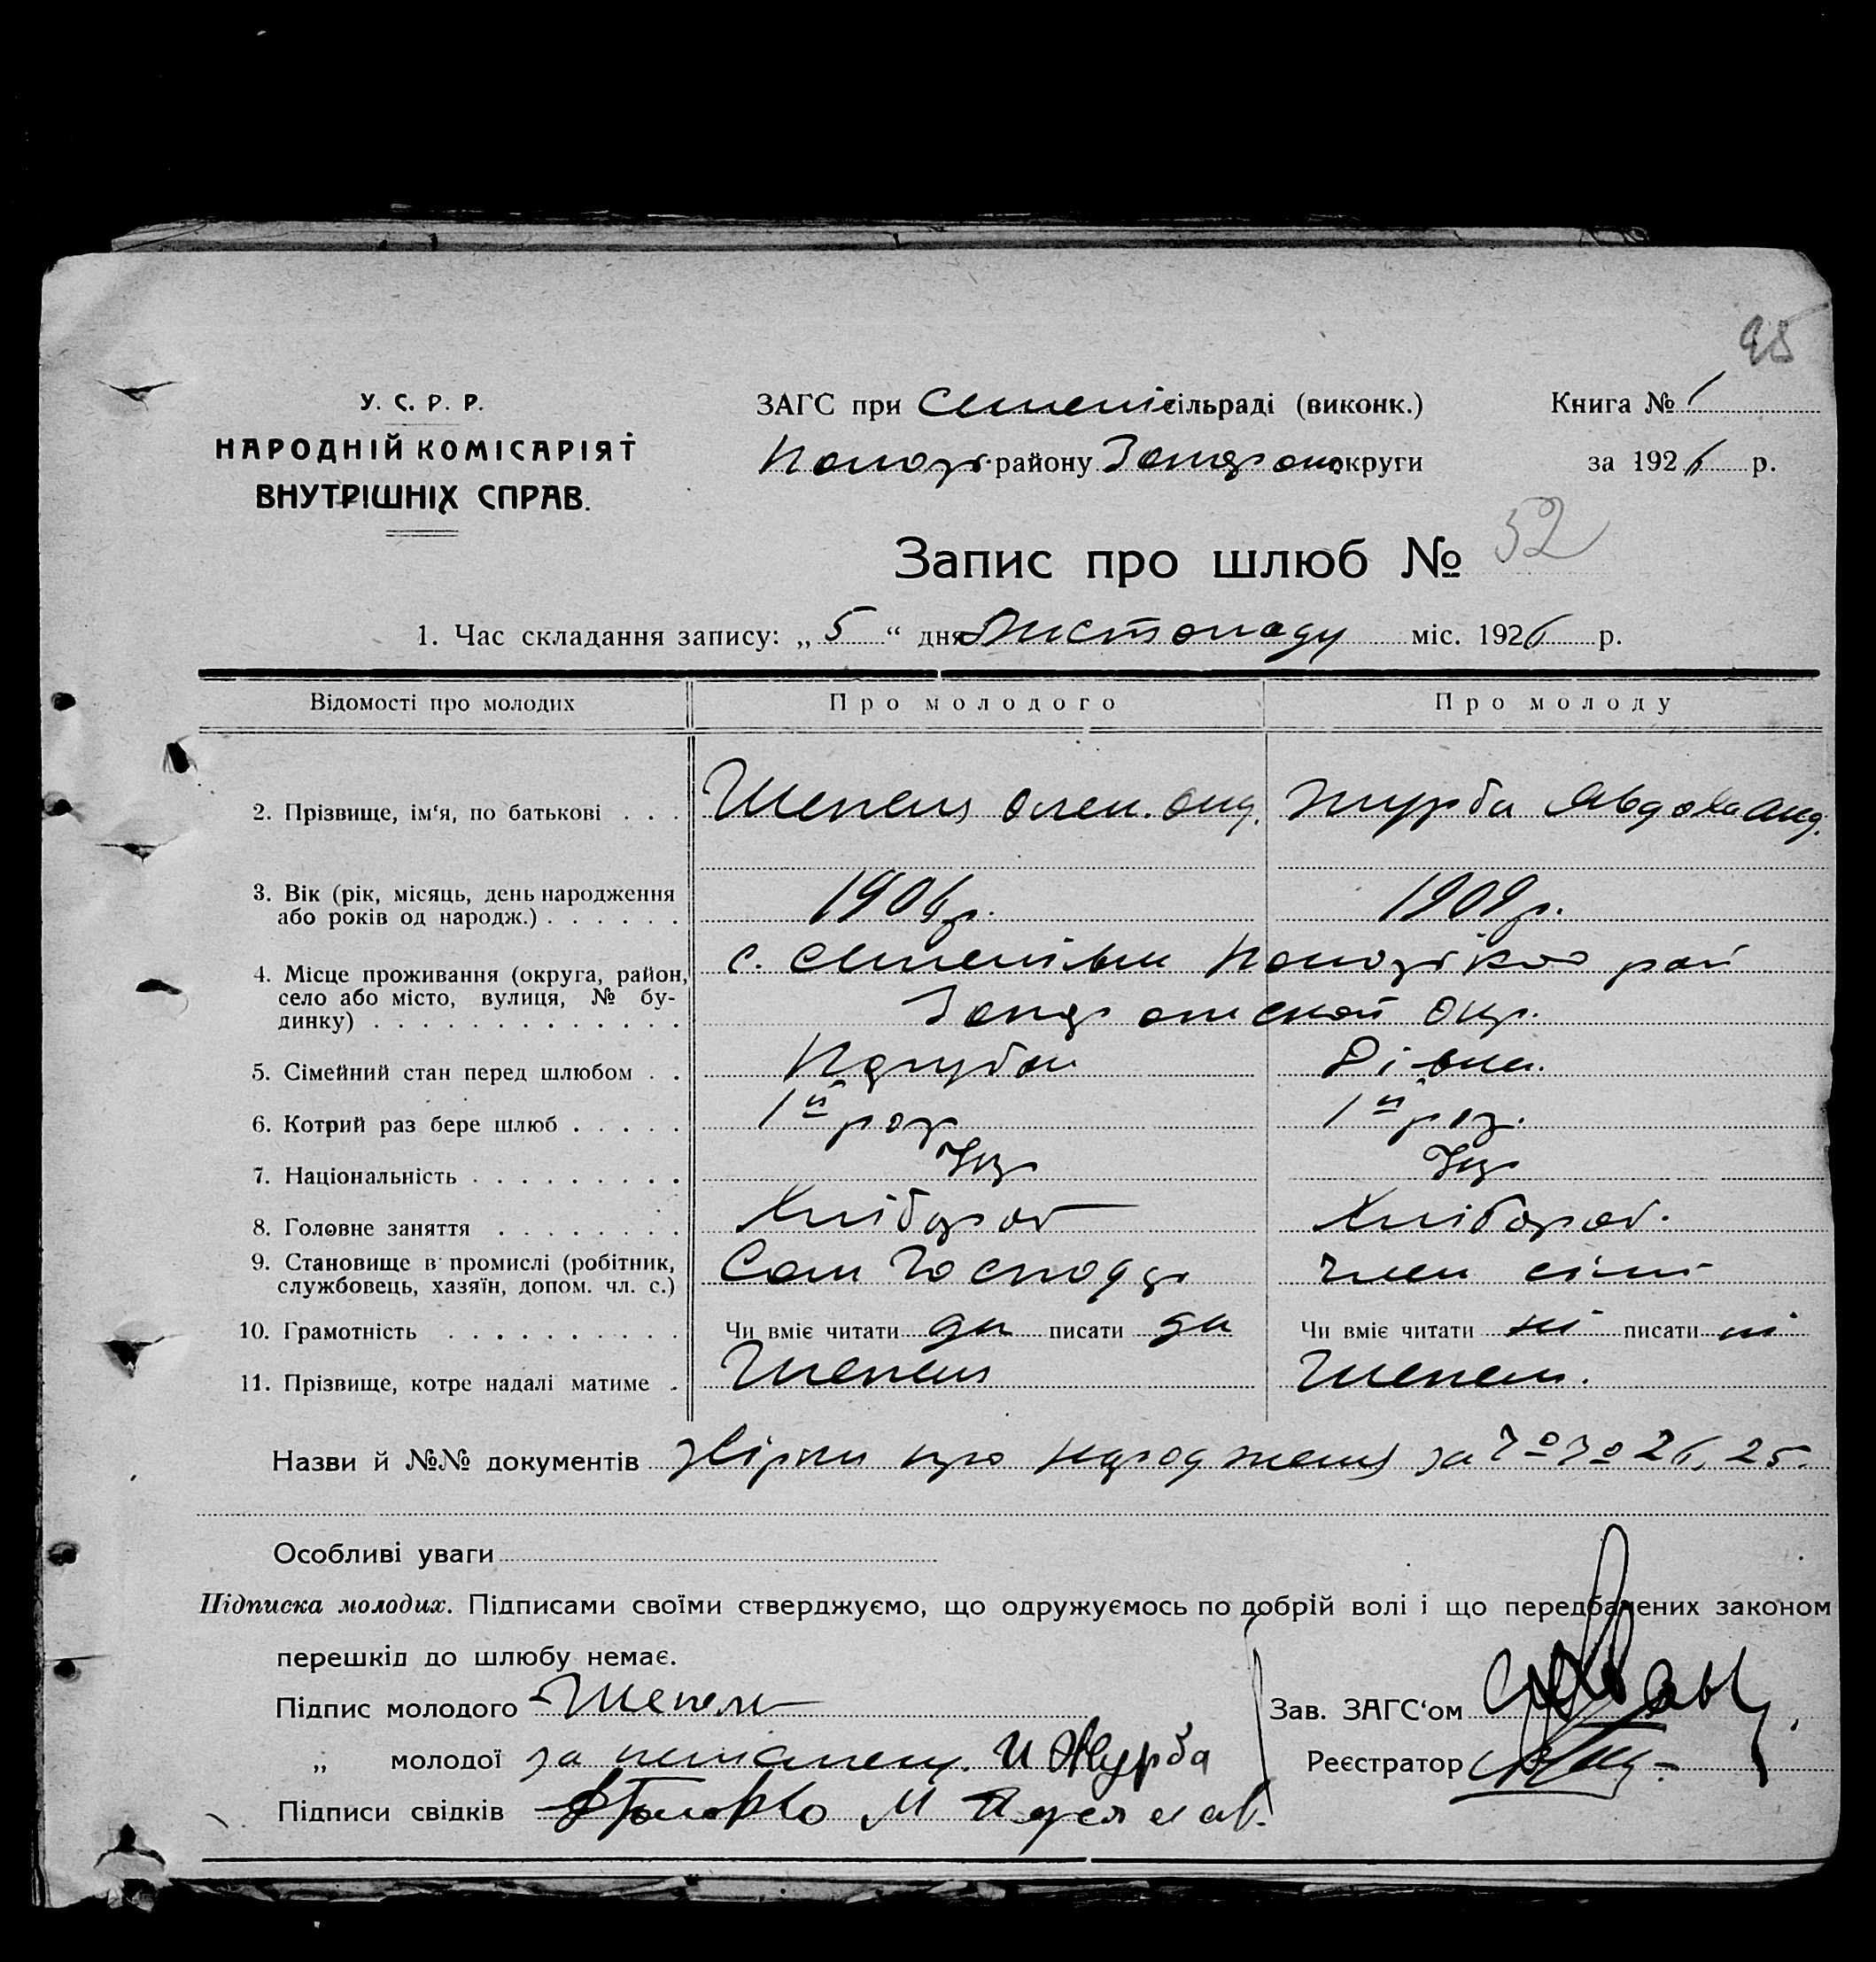 95
У. С. Р. Р.
НАРОДНІЙ КОМІСАРІЯТ
ВНУТРІШНІХ СПРАВ.
ЗАГС при Семені сільраді (виконк.)
Книга № 1
района Запоріз округи
за 1926 р.
Запис про шлюб № 52
1. Час складання запису: „5“ дня Листопаду міс. 1926 р.
Відомості про молодих Про молодого Про молоду
2. Прізвище, ім‘я, по батькові . . . Шепель Олек. Онд. Журба Явдоха Анд.
3. Вік (рік, місяць, день народження
або років од народж.) . . . . . . 1906 р. 1909 р.
4. Місце проживання (округа, район,
село або місто, вулиця, № бу-
динку) . . . . . . . . . . . . . с. рай
окр.
5. Сімейний стан перед шлюбом . . Парубок Дівка.
6. Котрий раз бере шлюб . . . . . 1й раз 1й раз.
7. Національність . . . . . . . . . Укр Укр
8. Головне заняття . . . . . . . . Хлібороб Хлібороб.
9. Становище в промислі (робітник,
службовець, хазяїн, допом. чл. с.) Сам Господар член сімї
10. Грамотність . . . . . . . . . . Чи вміє читати да писати да Чи вміє читати ні писати ні
11. Прізвище, котре надалі матиме . Шепель Шепель.
Назви й №№ документів про народження за №№ 26, 25.
Особливі уваги
Підписка молодих. Підписами своїми стверджуємо, що одружуємось по добрій волі і що передбачених законом
перешкід до шлюбу немає.
Підпис молодого Шепель
Зав. ЗАГС‘ом
„ молодої за И Журба
Реєстратор
Підписи свідків М